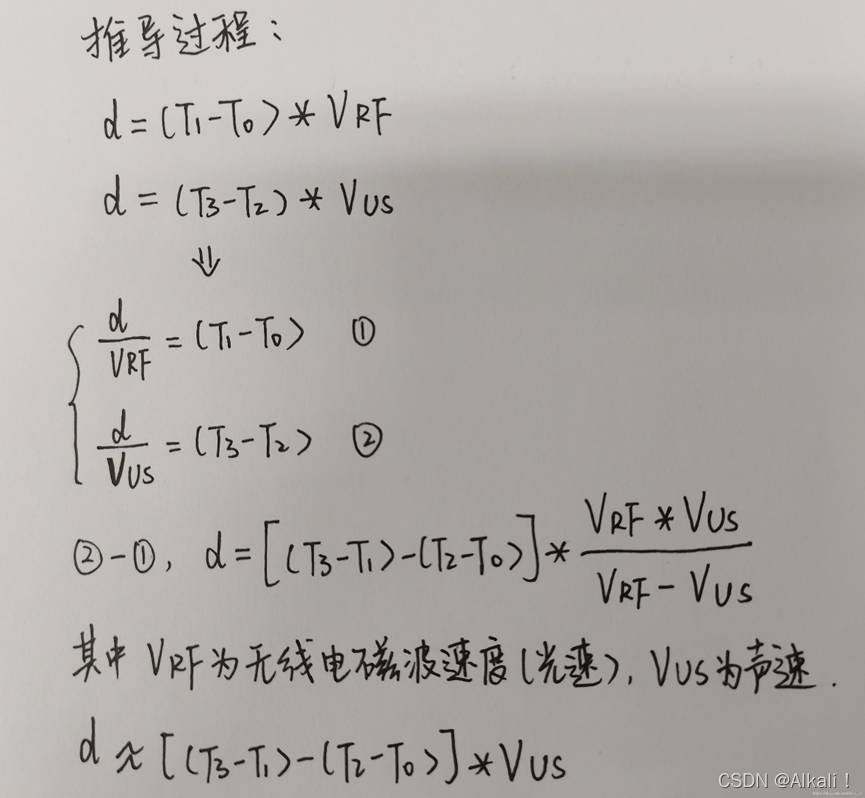 推导过程：
d=(T1-T0)*VRF
d=(T3-T2)*VUS
⇓
d/VRF=(T1-T0) ①
d/VUS=(T3-T2) ②
②-①, d=[(T3-T1)-(T2-T0)]*VRF*VUS/VRF-VUS
其中VRF为无线电磁波速度(光速), VUS为声速.
d≈[(T3-T1)-(T2-T0)]*VUS
CSDN @Alkali！